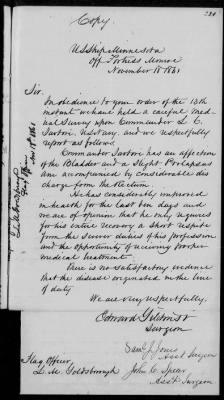 Copy
U.S. Ship Minnesota
Off Fortress Monroe
November 18 1861
Sir.
In obedience to your order of the 13th
instant we have held a careful Med-
ical Survey upon Commander L. C.
Sartori, U.S. Navy, and we respectfully
report as follows
Commander Sartori has an affection
of the Bladder and a slight Prolapsus
Ani accompanied by considerable dis
charge from the Rectum.
He has considerably improved
in health for the last ten days and
we are of opinion that he only requires
for his entire recovery a short respite
from the severer duties of his profession
and the opportunity of receiving proper
medical treatment.
There is no satisfactory evidence
that the disease originated in the line
of duty
We are very respectfully,
Edward Gilchrist
Surgeon
Saml. J. Jones
Asst Surgeon
John C. Spear
Asst Surgeon
Flag Officer,
L. M. Goldsborough
Flag Officer
Nov 18 1861